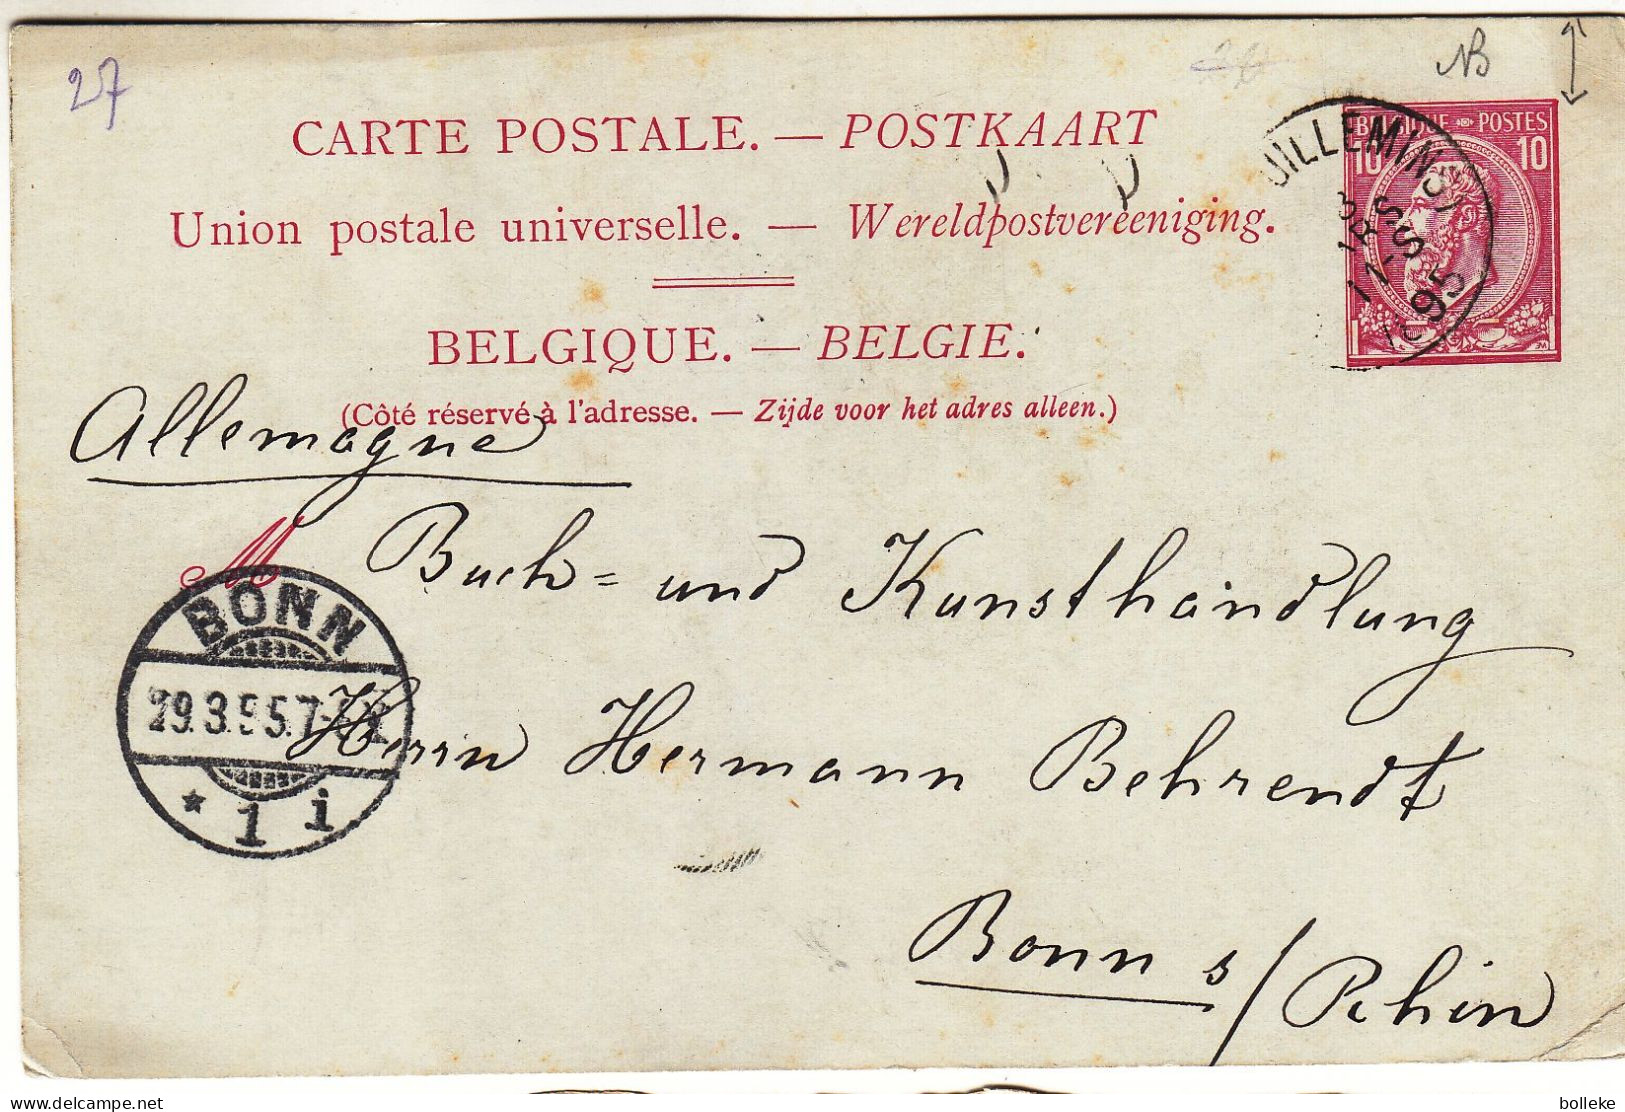 27
NB
CARTE POSTALE. — POSTKAART
BELGIQUE POSTES
10 10
Union postale universelle. — Wereldpostvereeniging.
BELGIQUE. — BELGIE.
(Côté réservé à l'adresse. — Zijde voor het adres alleen.)
Allemagne
M Buch= und Kunsthandlung
BONN
29.3.95.7-
* 1 i
Herrn Hermann Behrendt
Bonn s/Rhin
bolleke